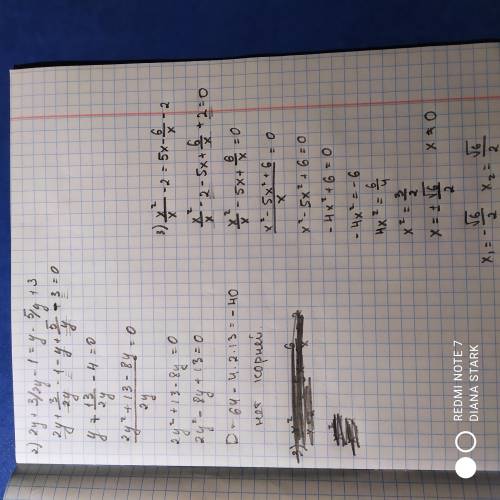 2) 2y + 3/2y - 1 = y - 5/y + 3
2y + 3/2y - 1 - y + 5/y - 3 = 0
y + 13/2y - 4 = 0
2y² + 13 - 8y / 2y = 0
2y² + 13 - 8y = 0
2y² - 8y + 13 = 0
D = 64 - 4 · 2 · 13 = -40
нет корней.
3) x²/x - 2 = 5x - 6/x - 2
x²/x - 2 - 5x + 6/x + 2 = 0
x²/x - 5x + 6/x = 0
x² - 5x² + 6 / x = 0
x² - 5x² + 6 = 0
-4x² + 6 = 0
-4x² = -6
4x² = 6/4
x² = 3/2
x = ± √6/2 x ≠ 0
x₁ = -√6/2 x₂ = √6/2
REDMI NOTE 7
DIANA STARK